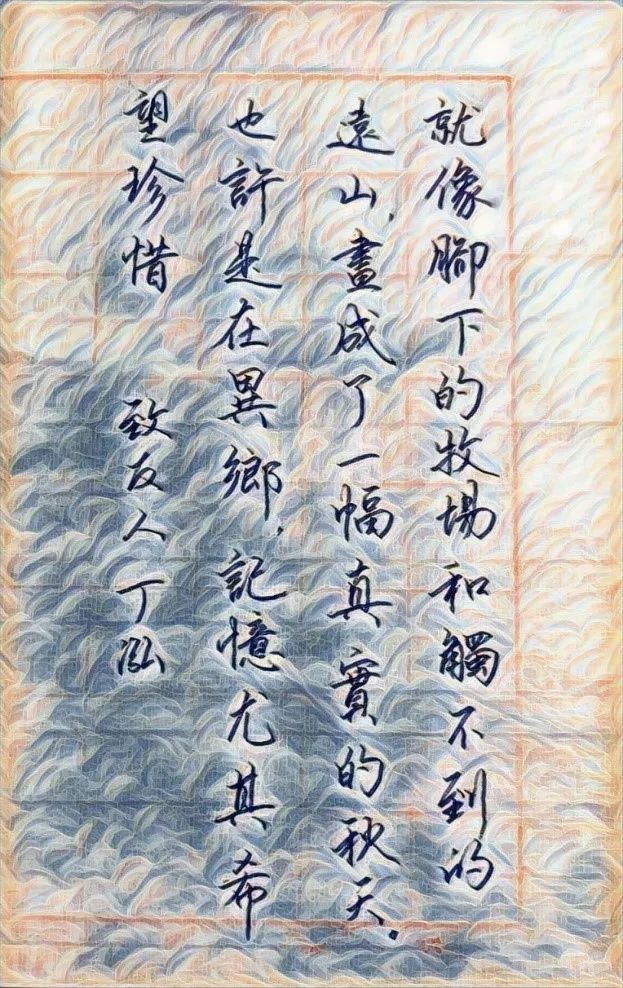 就像腳下的牧場和觸不到的
遠山,畫成了一幅真實的秋天.
也許是在異鄉,記憶尤其希
望珍惜 致友人丁泓